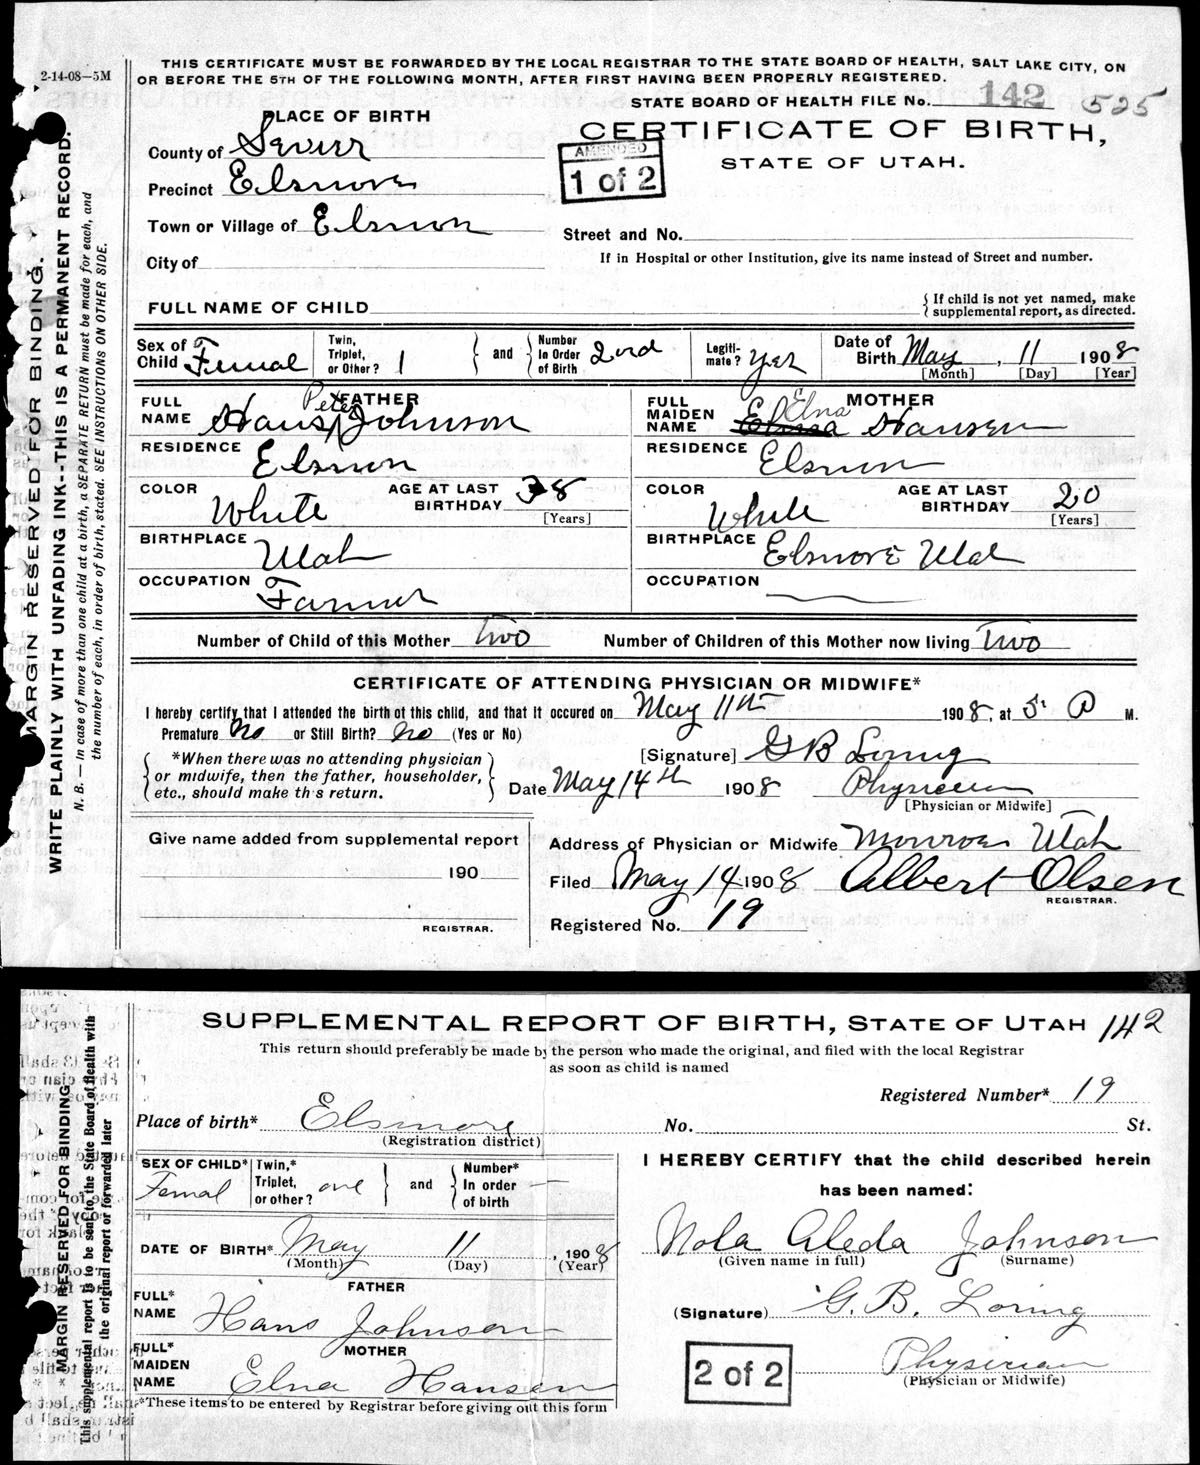 2-14-08—5M
THIS CERTIFICATE MUST BE FORWARDED BY THE LOCAL REGISTRAR TO THE STATE BOARD OF HEALTH, SALT LAKE CITY, ON
OR BEFORE THE 5TH OF THE FOLLOWING MONTH, AFTER FIRST HAVING BEEN PROPERLY REGISTERED.
STATE BOARD OF HEALTH FILE No. 142 525
PLACE OF BIRTH
CERTIFICATE OF BIRTH,
STATE OF UTAH.
AMENDED
1 of 2
County of Sevier
Precinct Elsinore
Town or Village of Elsinore
Street and No.
City of
If in Hospital or other Institution, give its name instead of Street and number.
FULL NAME OF CHILD
{ If child is not yet named, make
supplemental report, as directed.
Sex of Child Femal
Twin, Triplet, or Other? 1 } and { Number In Order of Birth 2ond
Legiti- mate? Yes
Date of Birth May, 11 1908
[Month] [Day] [Year]
FATHER
FULL NAME Hans Peter Johnson
RESIDENCE Elsinore
COLOR White
AGE AT LAST BIRTHDAY 38
[Years]
BIRTHPLACE Utah
OCCUPATION Farmer
MOTHER
FULL MAIDEN NAME Elna Hansen
RESIDENCE Elsinore
COLOR White
AGE AT LAST BIRTHDAY 20
[Years]
BIRTHPLACE Elsinore Utah
OCCUPATION
Number of Child of this Mother Two
Number of Children of this Mother now living Two
CERTIFICATE OF ATTENDING PHYSICIAN OR MIDWIFE*
I hereby certify that I attended the birth of this child, and that it occured on May 11th 1908, at 5: P M.
Premature No or Still Birth? No (Yes or No)
*When there was no attending physician
or midwife, then the father, householder,
etc., should make this return.
[Signature] G B Loring
Date May 14th 1908 Physician
[Physician or Midwife]
Give name added from supplemental report
190
REGISTRAR.
Address of Physician or Midwife Monroe Utah
Filed May 14 1908 Albert Olsen
REGISTRAR.
Registered No. 19
MARGIN RESERVED FOR BINDING.
WRITE PLAINLY WITH UNFADING INK--THIS IS A PERMANENT RECORD.
N. B. — In case of more than one child at a birth, a SEPARATE RETURN must be made for each, and
the number of each, in order of birth, stated. SEE INSTRUCTIONS ON OTHER SIDE.
SUPPLEMENTAL REPORT OF BIRTH, STATE OF UTAH 142
This return should preferably be made by the person who made the original, and filed with the local Registrar
as soon as child is named
Registered Number* 19
Place of birth* Elsinore No. St.
(Registration district)
SEX OF CHILD* Femal
Twin,* Triplet, or other? one } and { Number* In order of birth
DATE OF BIRTH* May 11, 1908
(Month) (Day) (Year)
FATHER
FULL* NAME Hans Johnson
MOTHER
FULL* MAIDEN NAME Elna Hansen
*These items to be entered by Registrar before giving out this form
I HEREBY CERTIFY that the child described herein
has been named:
Nola Aleda Johnson
(Given name in full) (Surname)
(Signature) G. B. Loring
Physician
(Physician or Midwife)
2 of 2
MARGIN RESERVED FOR BINDING
This supplemental report is to be sent to the State Board of Health with
the original report or forwarded later